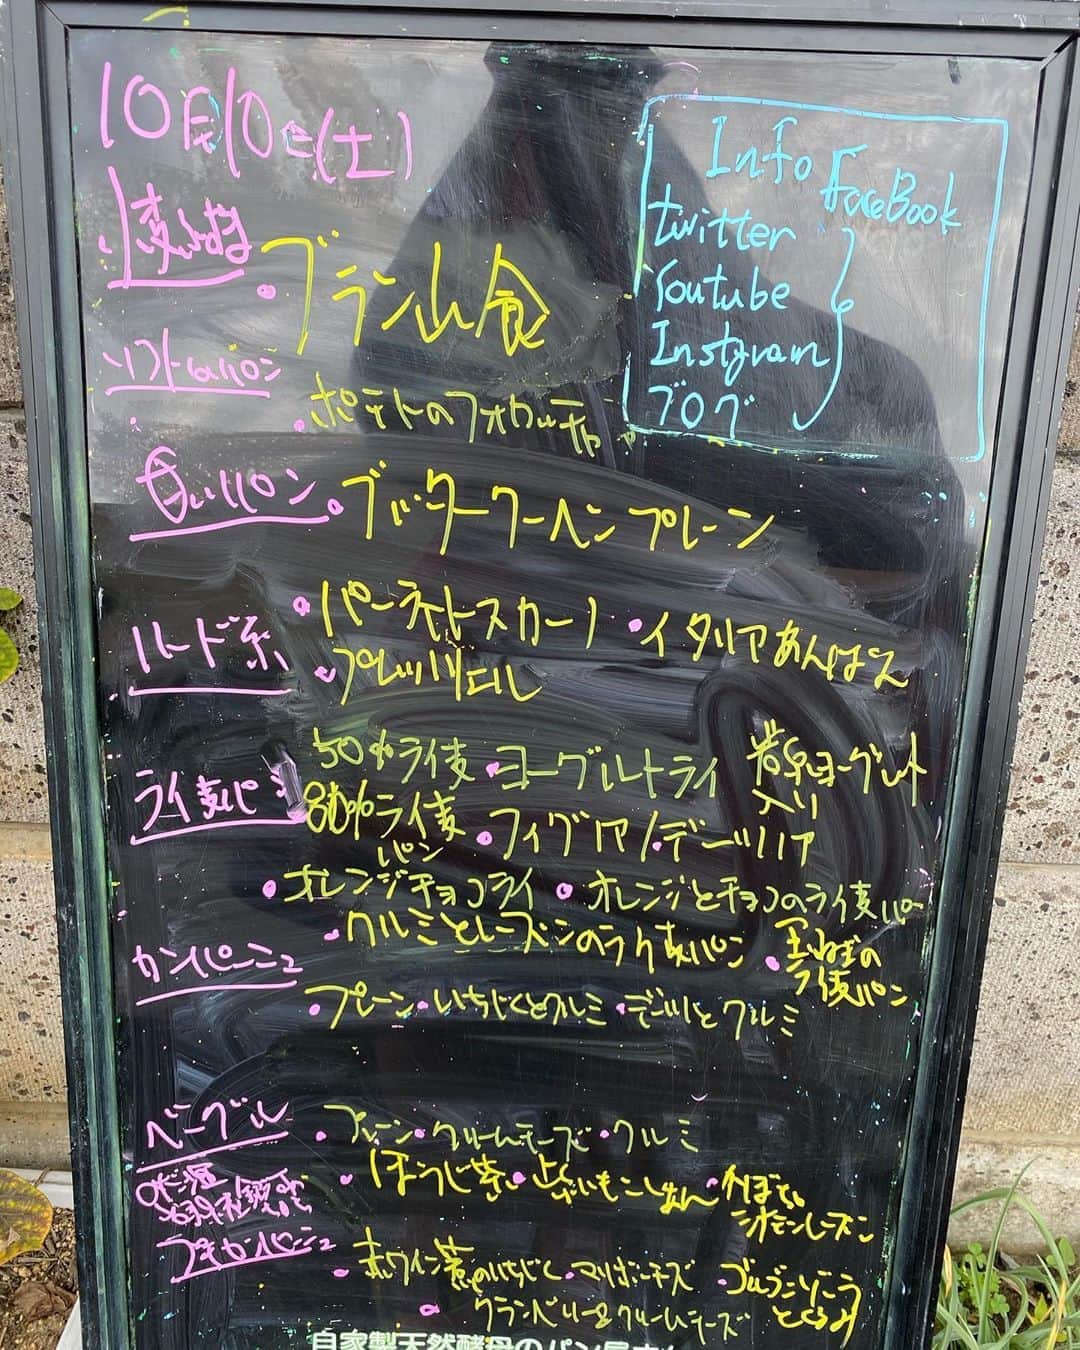 10月10日(土)
Info
FaceBook
twitter
Youtube
Instgram
ブログ
ブラン山食
ソフトなパン
・ポテトのフォカッチャ
甘いパン
・ブッタークーヘン プレーン
ハード系
・パーネトスカーノ ・イタリアあんぱん
・プレッツェル
ライ麦パン
50%ライ麦 ・ヨーグルトライ ヨーグルト入り
80%ライ麦パン ・フィグノア/デーツノア
・オレンジチョコライ ・オレンジとチョコのライ麦パン
・クルミとレーズンのライ麦パン ・玉ねぎのライ麦パン
カンパーニュ
・プレーン ・いちじくとクルミ ・デーツとクルミ
ベーグル
・プレーン ・クリームチーズ ・クルミ
・ほうじ茶 ・紫いもこしあん ・かぼちゃシナモンレーズン
プチカンパーニュ
・赤ワイン煮のいちじく ・マリボーチーズ ・ゴルゴンゾーラとくるみ
・クランベリー&クリームチーズ
自家製天然酵母のパン屋さん